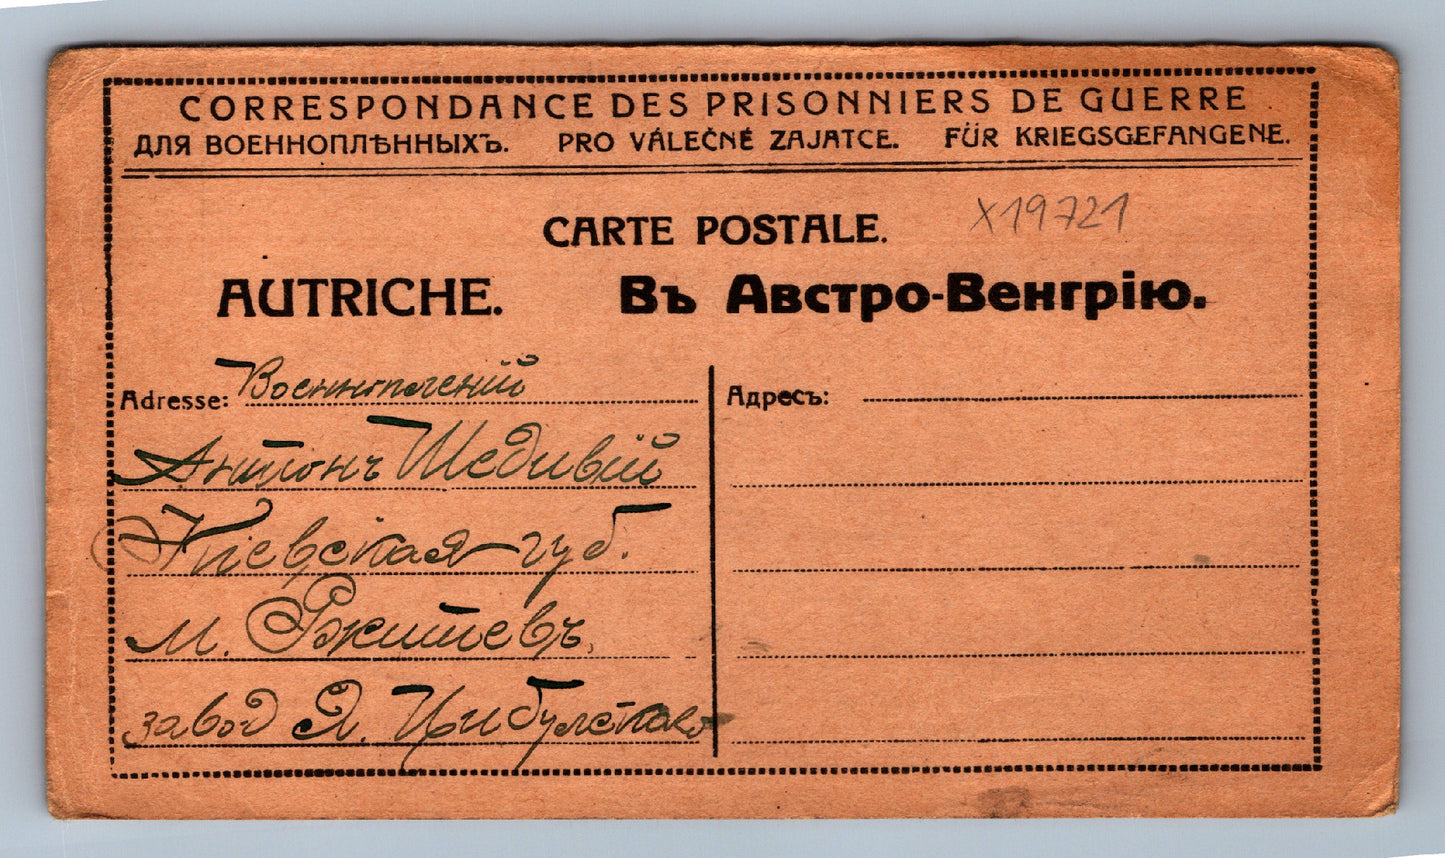 CORRESPONDANCE DES PRISONNIERS DE GUERRE
ДЛЯ ВОЕННОПЛѢННЫХЪ. PRO VÁLEČNÉ ZAJATCE. FÜR KRIEGSGEFANGENE.
CARTE POSTALE. X19721
AUTRICHE. Въ Австро-Венгрію.
Adresse: Военнопленій
Антонъ Шедивій
Кіевская губ.
м. Ржищевъ
завод Я. Цибульскаво
Адресъ: